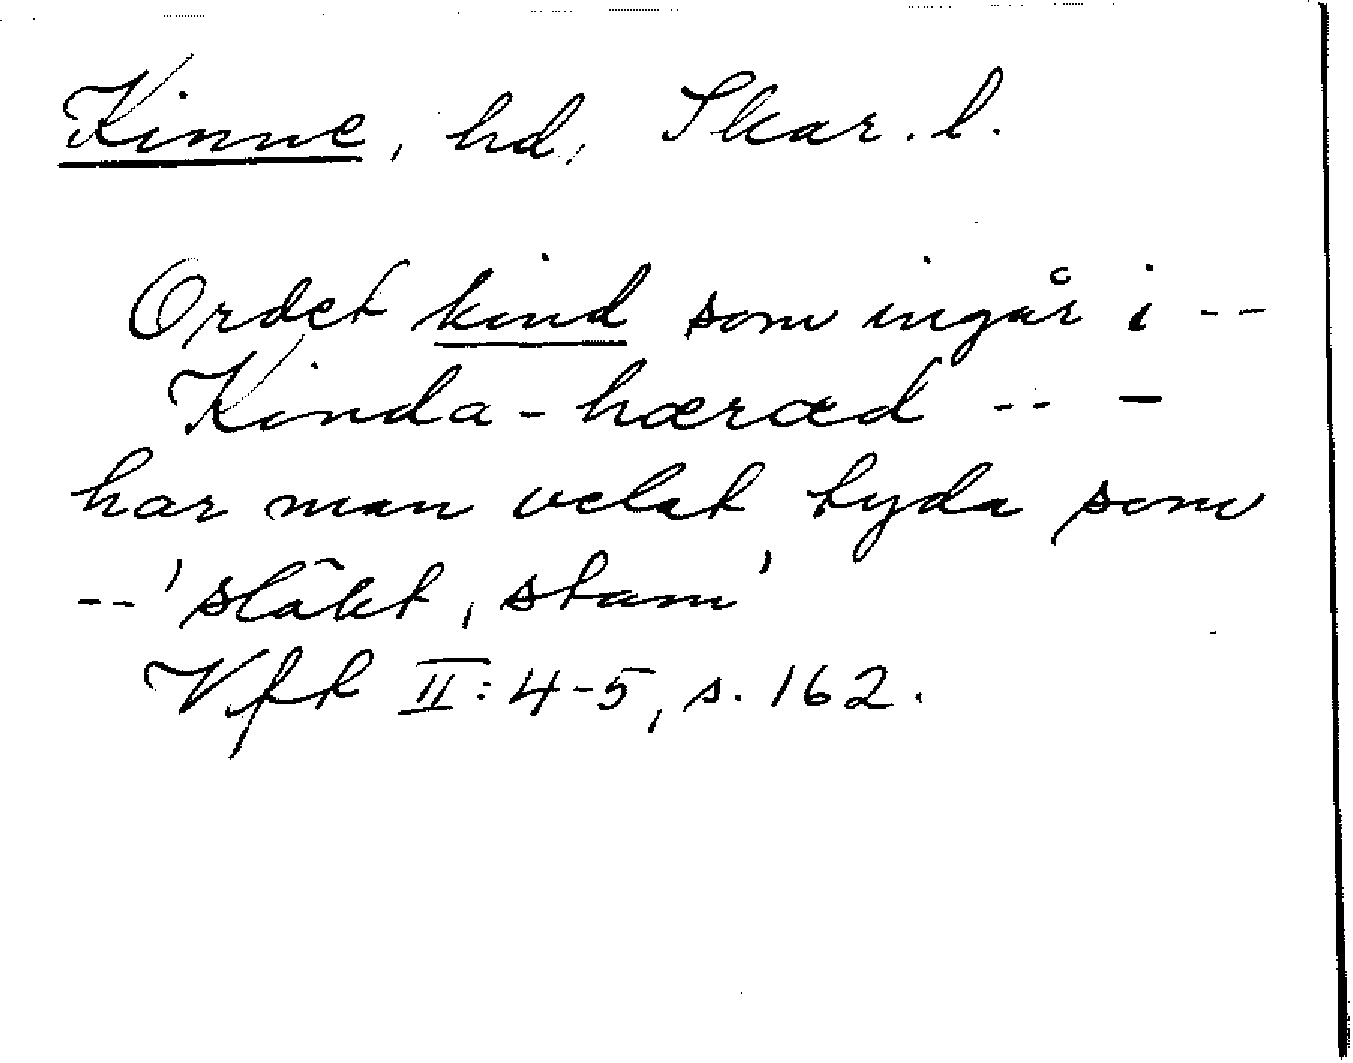 Kinne, hd, Skar. l.
Ordet kind som ingår i --
Kinda-hæræd -- -
har man velat tyda som
--'släkt, stam'
Vft II: 4-5, s. 162.